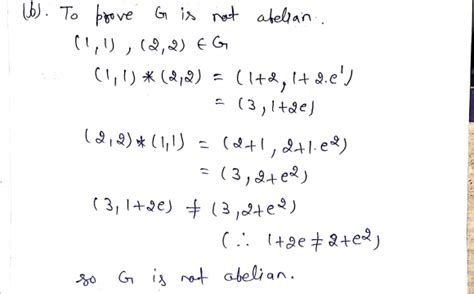 (b). To prove G is not abelian.
(1,1), (2,2) ∈ G
(1,1) * (2,2) = (1+2, 1+2.e¹)
= (3, 1+2e)
(2,2) * (1,1) = (2+1, 2+1.e²)
= (3, 2+e²)
(3, 1+2e) ≠ (3, 2+e²)
(∴ 1+2e ≠ 2+e²)
so G is not abelian.